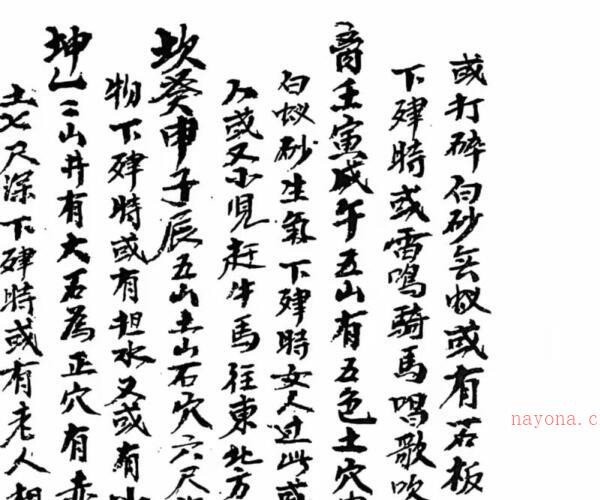 或打碎白砂無蚁或有石板
下肂時或雷鳴騎馬唱歌吹
壬寅戌午五山有五色土穴
白蚁砂生氣下肂時女人过此或
人或又小児赶牛馬往東北方
坎癸申子辰五山土山石穴六尺
物下肂時或有担水又或有
坤乙二山井有大石為正穴有赤
土七尺深下肂時或有老人
nayona.c